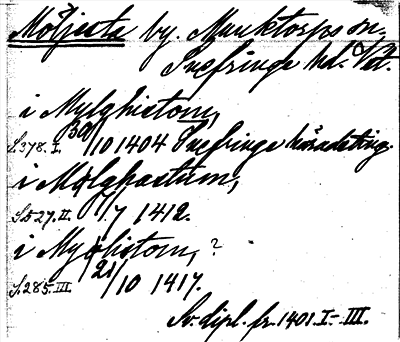 Möljesta by. Munktorps sn.
Snefringe hd. Vtl.
i Mylghistom,
S.378. I. 30/10 1404 Snefringe häradsting.
i Mølghastum,
S.527. II. 7/7 1412.
i Myølistom, ?
S.285. III 21/10 1417.
Sv. dipl. fr. 1401. I-III.